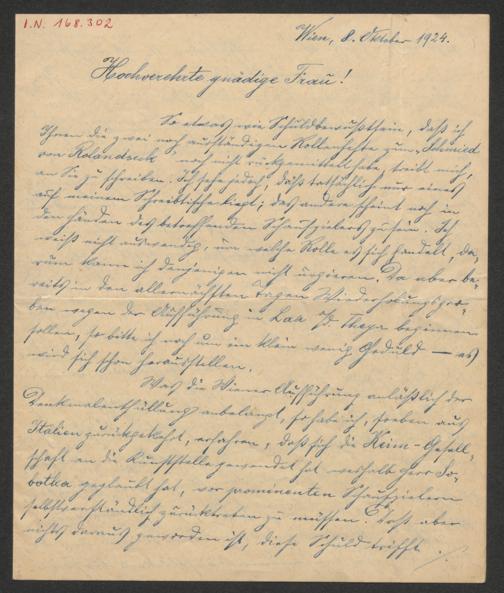 I.N. 168.302
Wien, 8. Oktober 1924.
Hochverehrte gnädige Frau!
So etwas wie Schuldbewußtsein, daß ich
Ihnen die zwei noch ausständigen Rollenhefte zum „Schmied
von Rolandseck" noch nicht rückgemittelt habe, treibt mich,
an Sie zu schreiben. Ich sehe jedoch, daß tatsächlich nur eines
auf meinem Schreibtische liegt; das andere scheint noch in
den Händen des betreffenden Schauspielers zu sein. Ich
weiß nicht auswendig, um welche Rolle es sich handelt, da-
rum kann ich denjenigen nicht urgieren. Da aber be-
reits in den allernächsten Tagen Wiederholungspro-
ben wegen der Aufführung in Laa a/d Thaya beginnen
sollen, so bitte ich noch um ein klein wenig Geduld — es
wird sich schon herausstellen.
Was die Wiener Aufführung anläßlich der
Denkmalenthüllung anbelangt, so habe ich, soeben aus
Italien zurückgekehrt, erfahren, daß sich die Keim-Gesell-
schaft an die Kunststelle gewendet hat weshalb Herr So-
botka geglaubt hat, vor prominenten Schauspielern
selbstverständlich zurücktreten zu müssen. Daß aber
nichts daraus geworden ist, diese Schuld trifft ./.